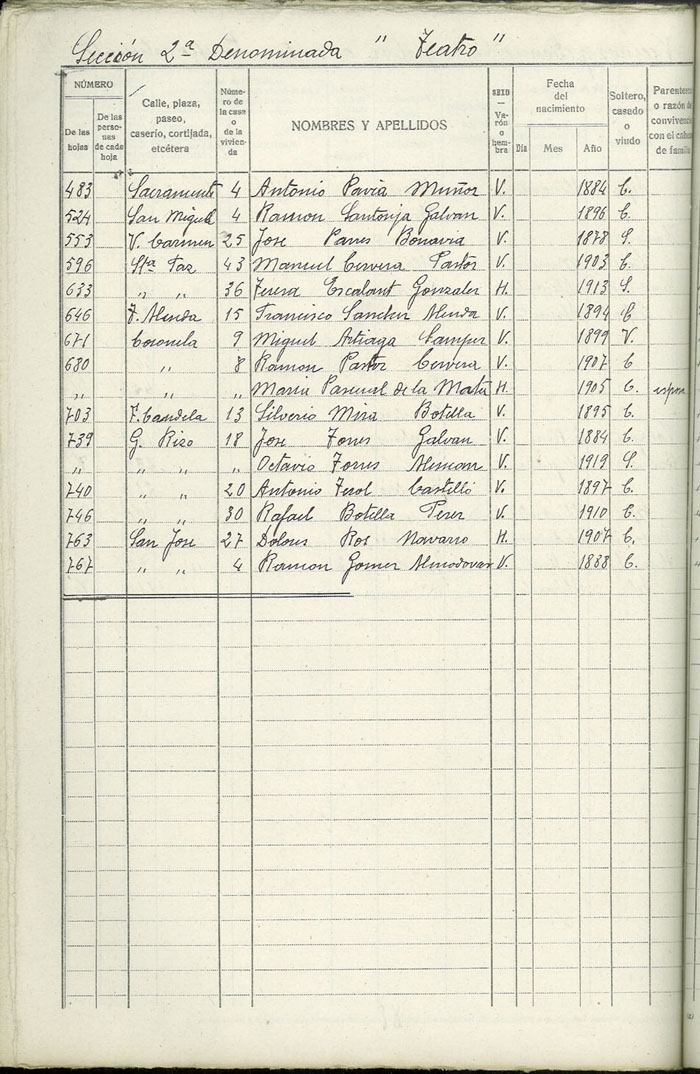 Sección 2ª Denominada " Teatro "
NÚMERO
De las hojas
De las personas de cada hoja
Calle, plaza, paseo, caserío, cortijada, etcétera
Número de la casa o de la vivienda
NOMBRES Y APELLIDOS
SEXO — Varón o hembra
Fecha del nacimiento
Día Mes Año
Soltero, casado o viudo
Parentesco o razón de convivencia con el cabeza de familia
483 Sacramento 4 Antonio Pavia Muñoz V. 1884 C.
524 San Miguel 4 Ramon Santonja Galvan V. 1896 C.
553 V. Carmen 25 Jose Parres Bonavia V. 1878 S.
596 Sta Faz 43 Manuel Cervera Pastor V. 1903 C.
633 " " 36 Teresa Escalant Gonzalez H. 1913 S.
646 F. Alenda 15 Francisco Sanchez Alenda V. 1894 C
671 Coronela 9 Miguel Artiaga Samper V. 1899 V.
680 " 8 Ramon Pastor Cervera V. 1907 C
" " " Maria Pascual de la Mata H. 1905 C. esposa
703 F. Candela 13 Silverio Mira Botella V. 1895 C.
739 G. Rizo 18 Jose Torres Galvan V. 1884 C.
" " " " Octavio Torres Alemañ V. 1919 S.
740 " " 20 Antonio Terol Castelló V. 1897 C.
746 " " 30 Rafael Botella Perez V. 1910 C.
763 San Jose 27 Dolores Ros Navarro H. 1907 C.
767 " " 4 Ramon Gomez Almodovar V. 1888 C.